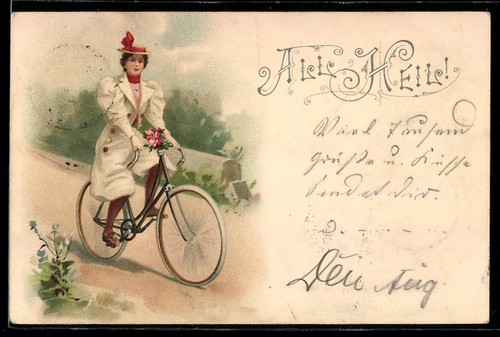 All Heil!
Viel Tausend
Grüße u. Küsse
sendet Dir.
Dein Aug